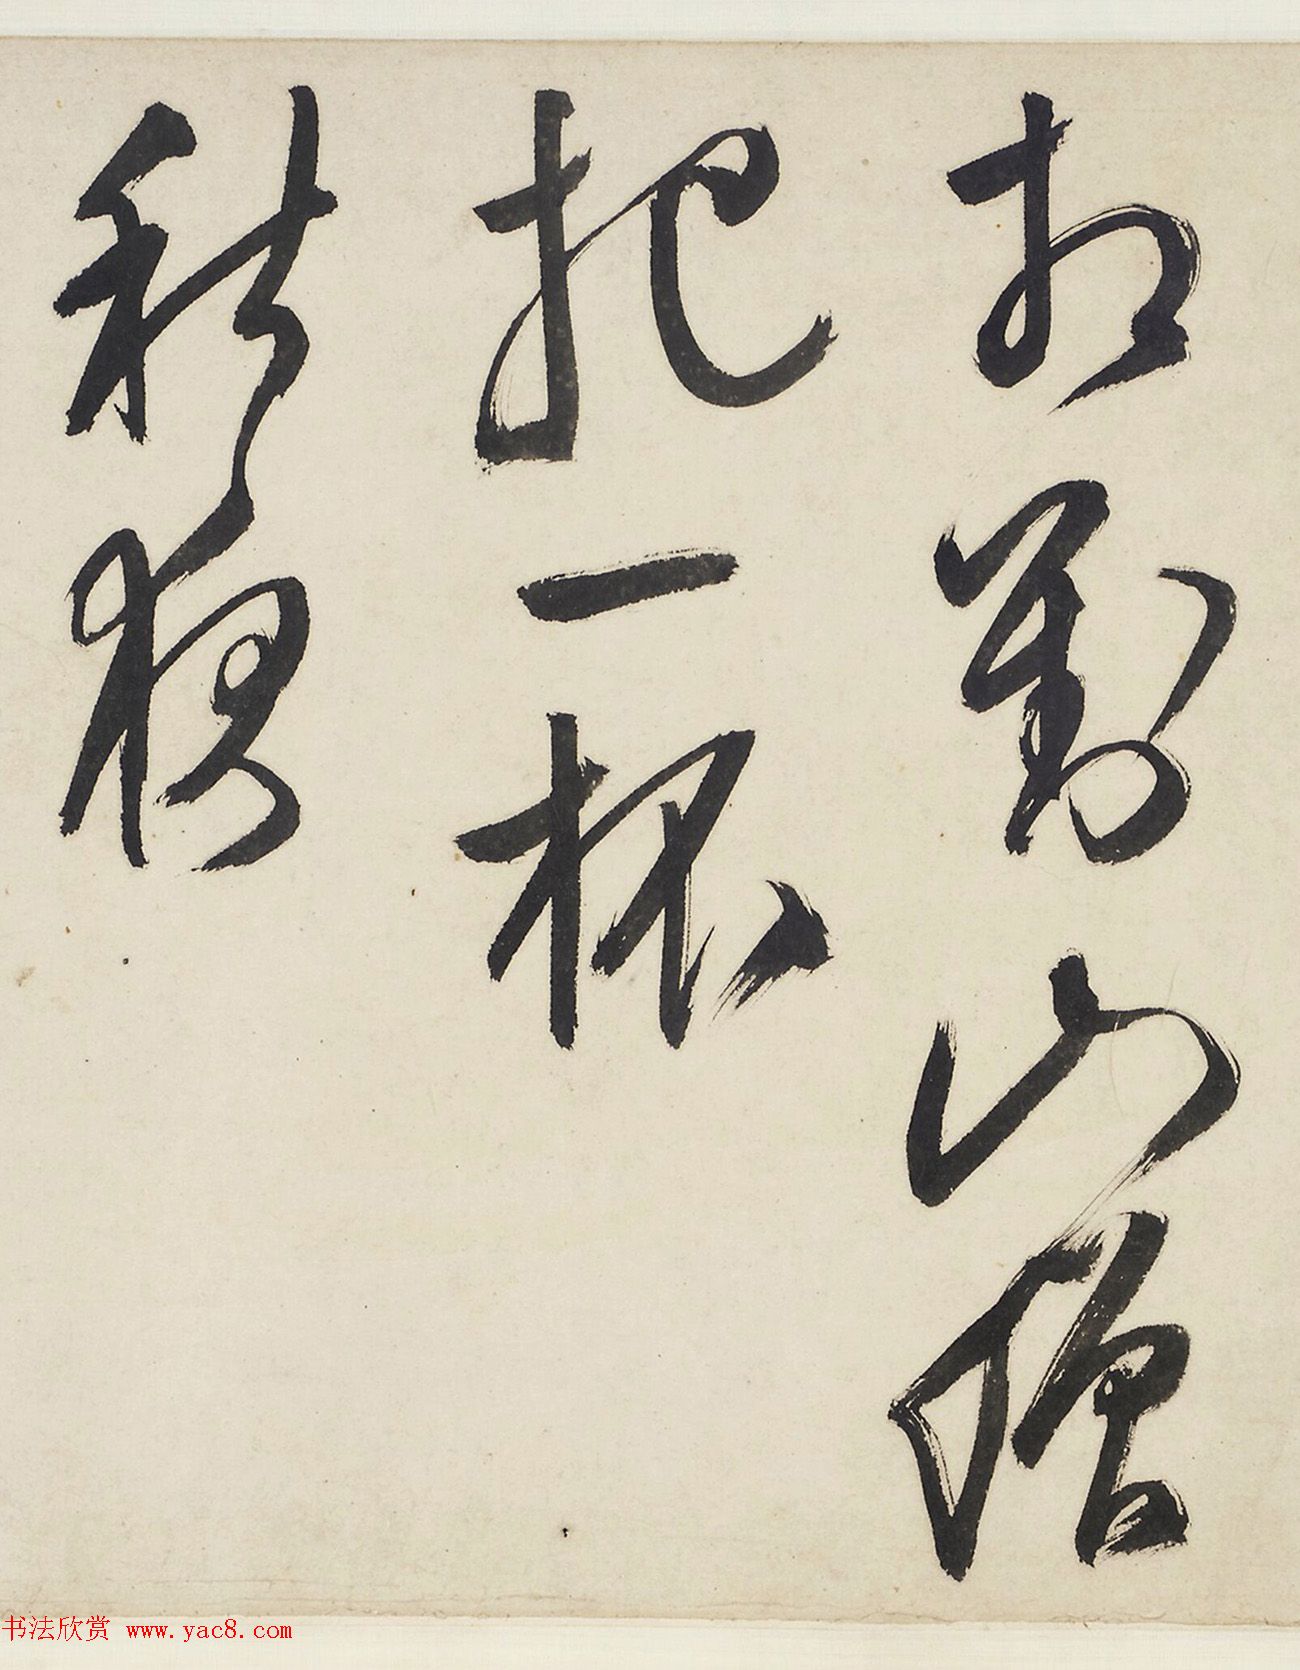 相對山僧
把一杯
秋夜
书法欣赏 www.yac8.com